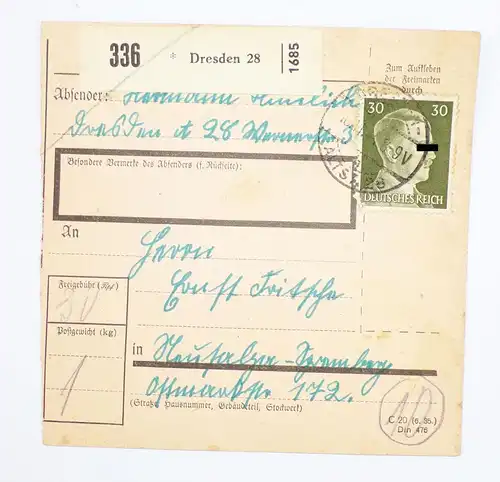 336 * Dresden 28
1685
Zum Aufkleben
der Freimarken
durch
Absender: Hermann
Dresden A 28 Wernerstr. 3
30 30
DEUTSCHES REICH
Besondere Vermerke des Absenders (s. Rückseite):
An
Herrn
Ernst Fritsche
Freigebühr (Rpf)
30
Postgewicht (kg)
1
in Neusalza-Spremberg
Ostmarkstr 172.
(Straße, Hausnummer, Gebäudeteil, Stockwerk)
10
C 20 (6. 35.)
Din 476